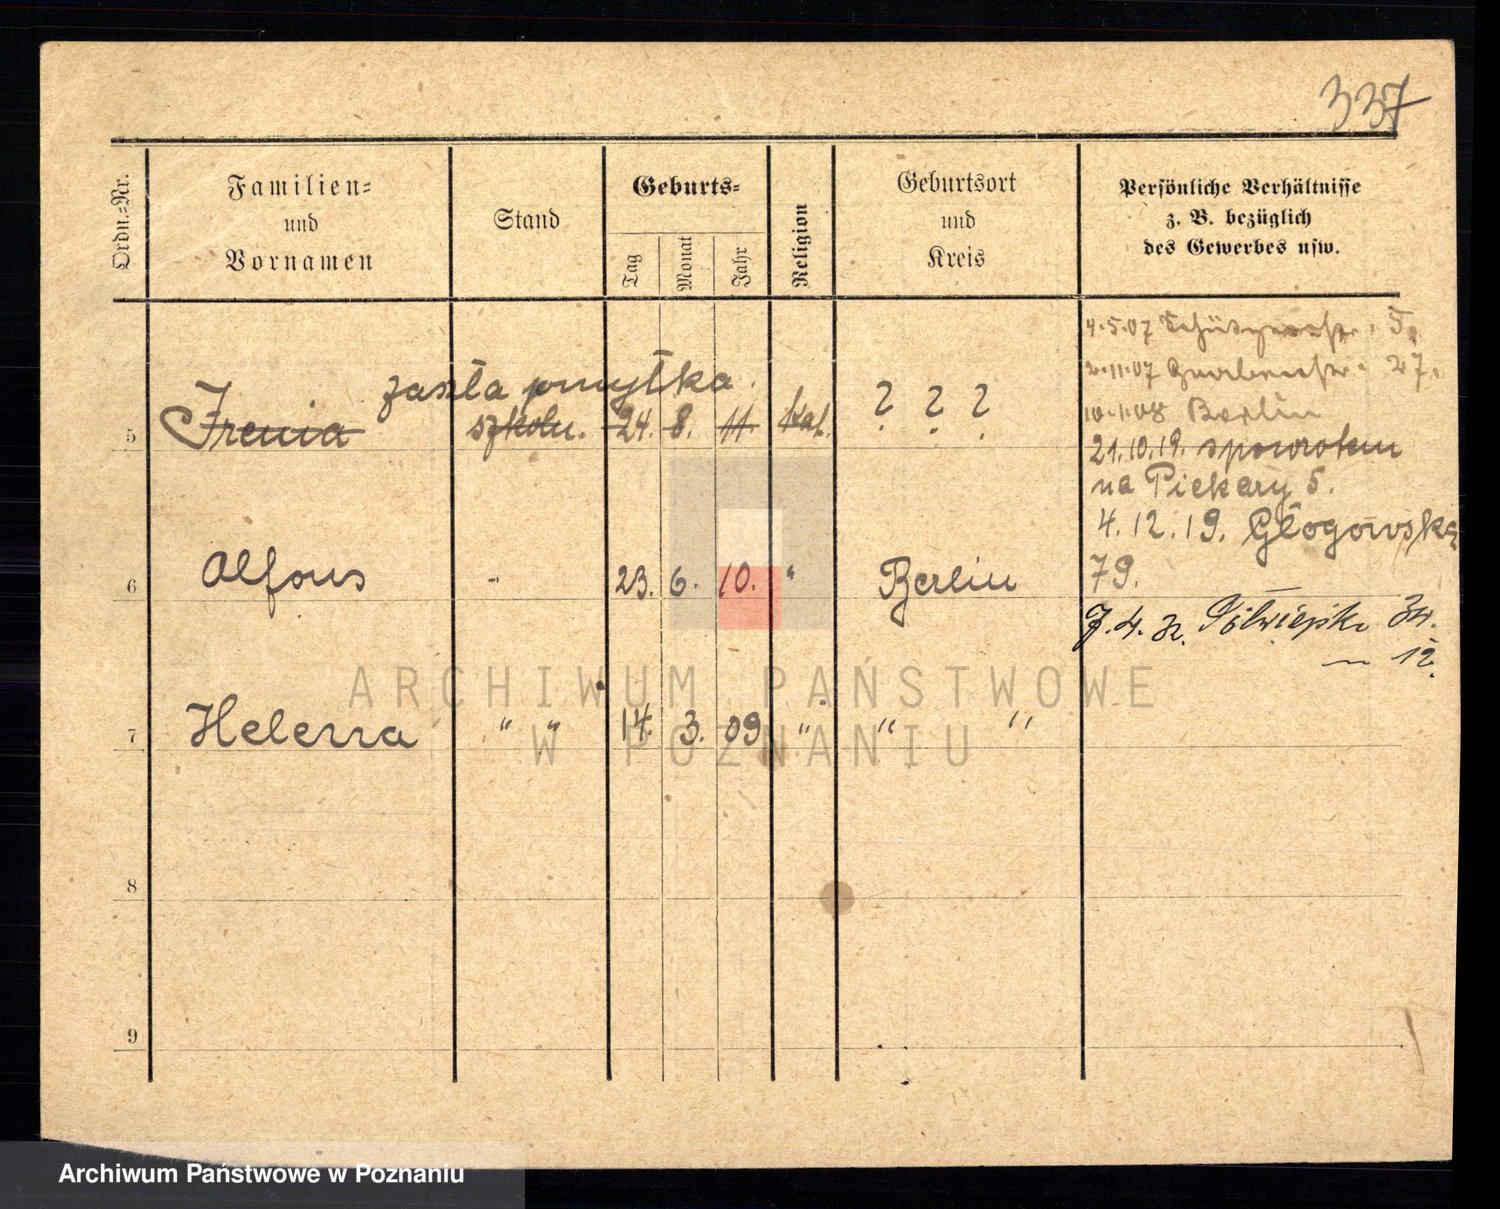 337
Ordn.-Nr.
Familien-
und
Vornamen
Stand
Geburts-
Tag
Monat
Jahr
Religion
Geburtsort
und
Kreis
Persönliche Verhältnisse
z. B. bezüglich
des Gewerbes usw.
4.5.07 Schützenstr. 5.
2.11.07 27.
10.1.08 Berlin
zaszła pomyłka.
5 Irenia szkoln. 24. 8. 11. kat. ? ? ?
21.10.19. spowrotem
na Piekary 5.
4.12.19. Głogowska
79.
6 Alfons - 23. 6. 10. " Berlin
7.4.32. Półwiejska 34.
— 12.
7 Helena " " 14. 3. 09 " " "
8
9
ARCHIWUM PAŃSTWOWE
W POZNANIU
Archiwum Państwowe w Poznaniu